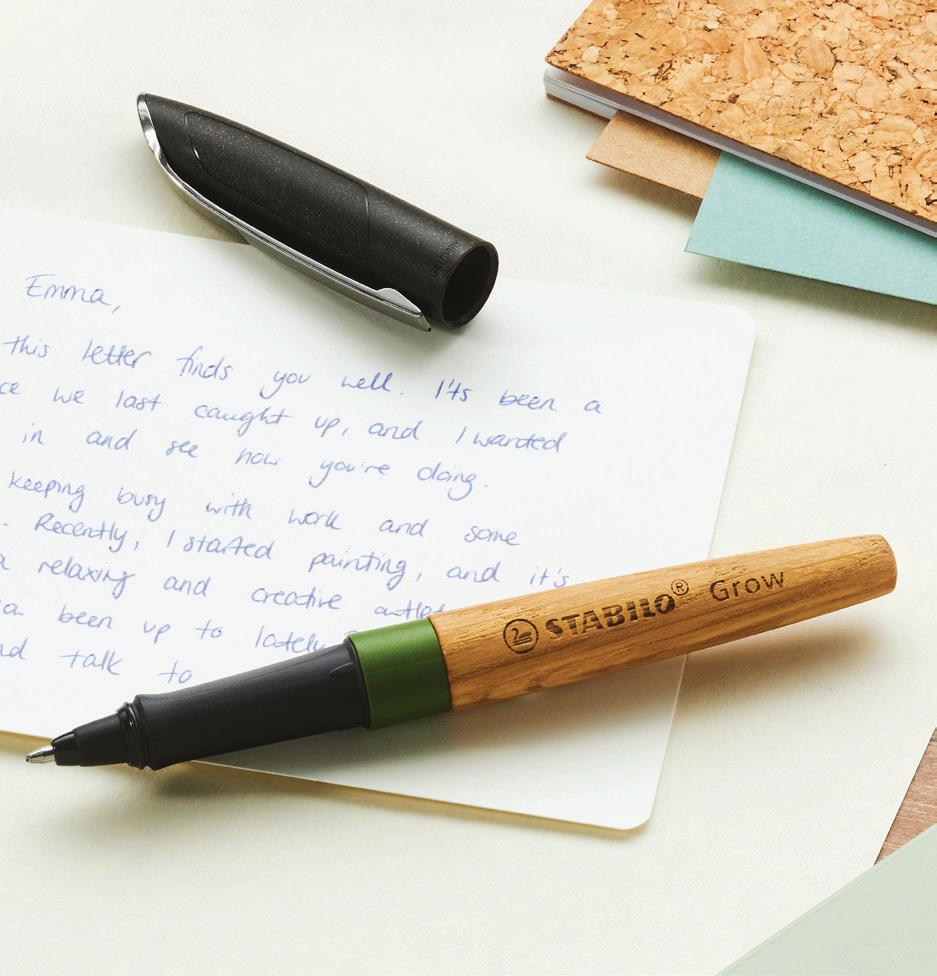 Germany
Emma,
this letter finds you well. It's been a
ce we last caught up, and I wanted
in and see how you're doing.
keeping busy with work and some
. Recently, I started painting, and it's
a relaxing and creative outlet
been up to lately
nd talk to
STABILO® Grow